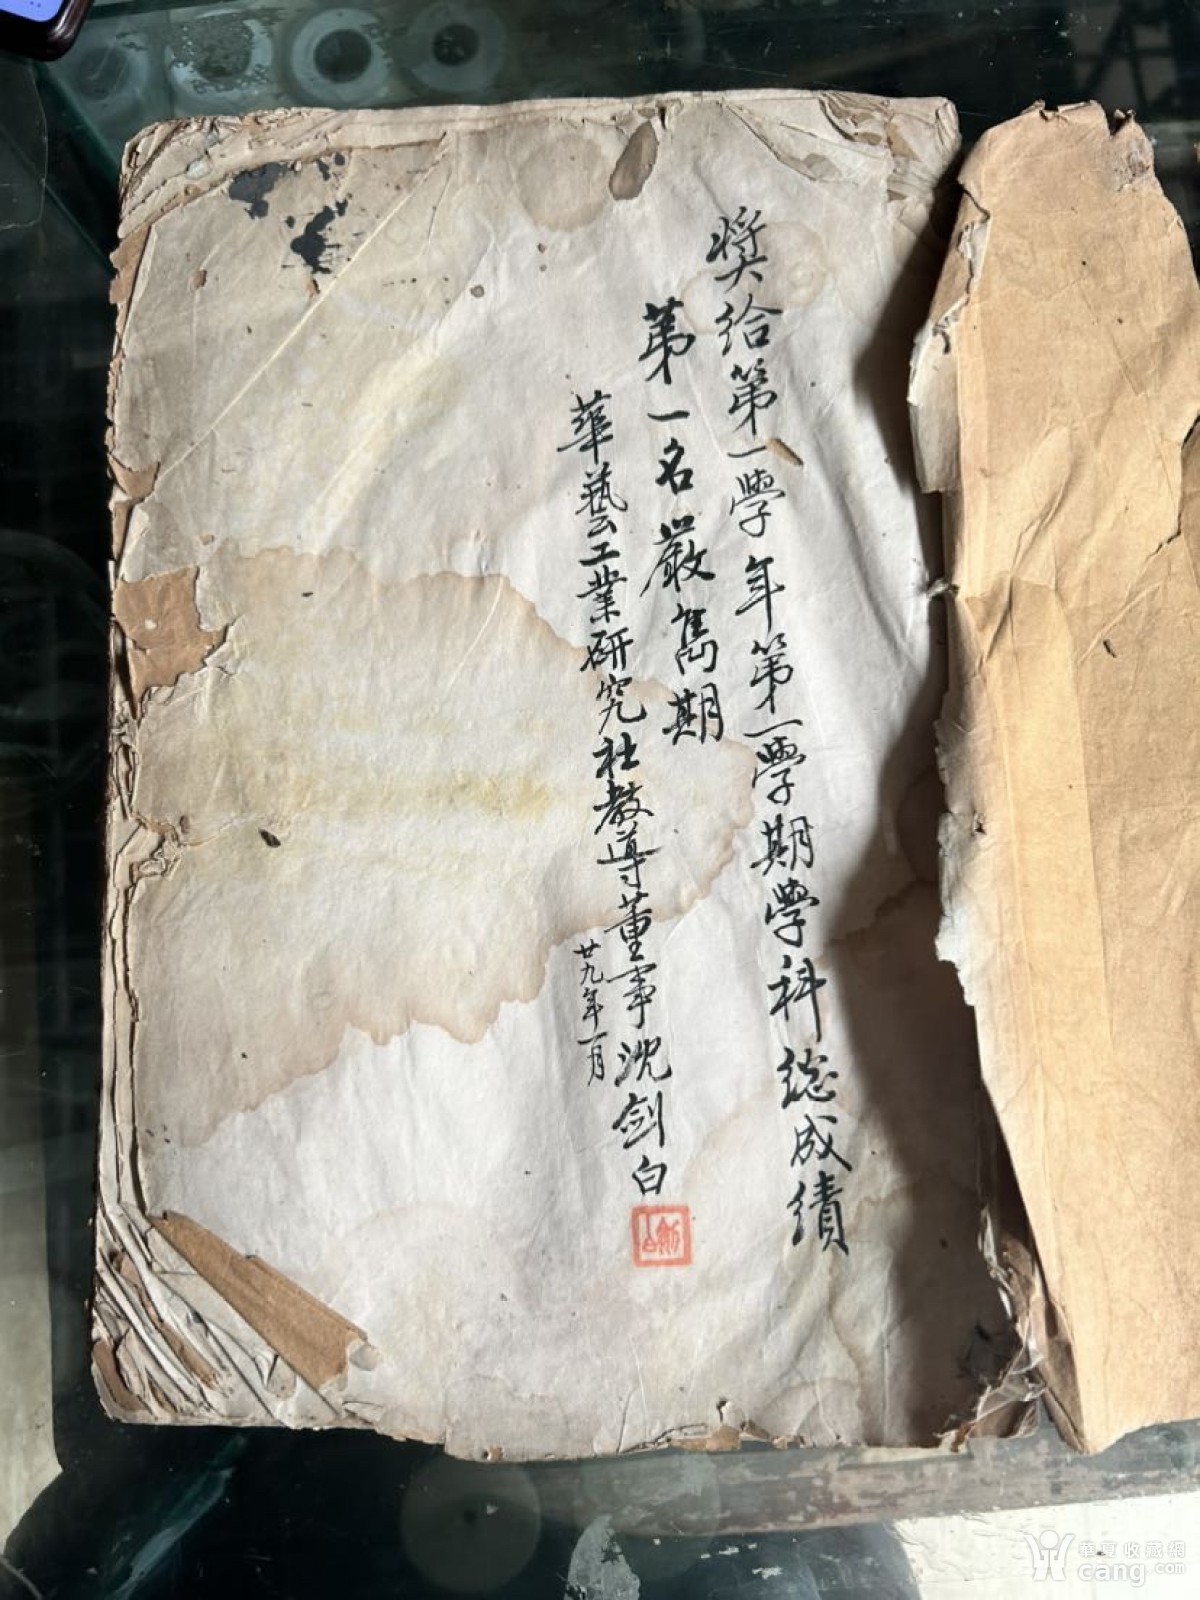 奬给第一學年第一學期學科総成績
第一名嚴雋期
華藝工業研究社教導董事沈劍白
廿九年一月
華夏收藏網
cang.com